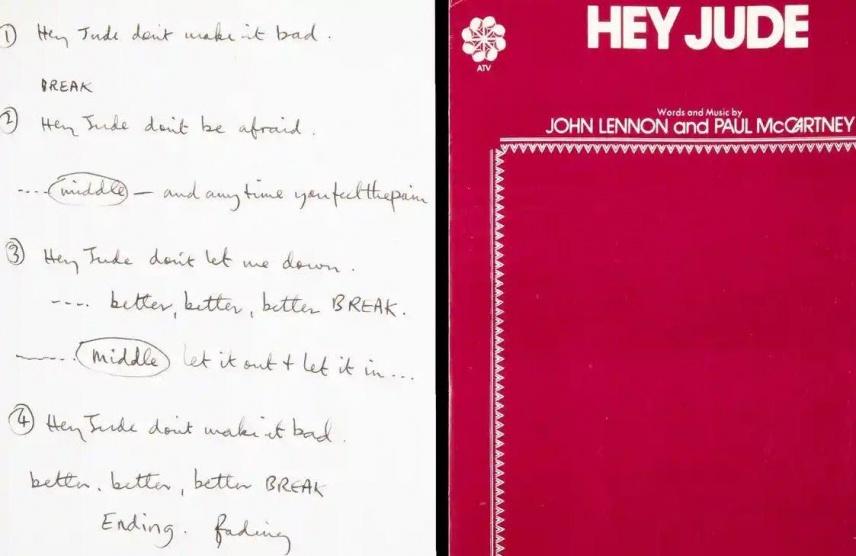 ① Hey Jude don't make it bad.
BREAK
② Hey Jude don't be afraid.
---- middle — and any time you feel the pain
③ Hey Jude don't let me down.
---- better, better, better BREAK.
---- middle let it out + let it in...
④ Hey Jude dont make it bad.
better. better, better BREAK
Ending. fading
ATV
HEY JUDE
Words and Music by
JOHN LENNON and PAUL McCARTNEY